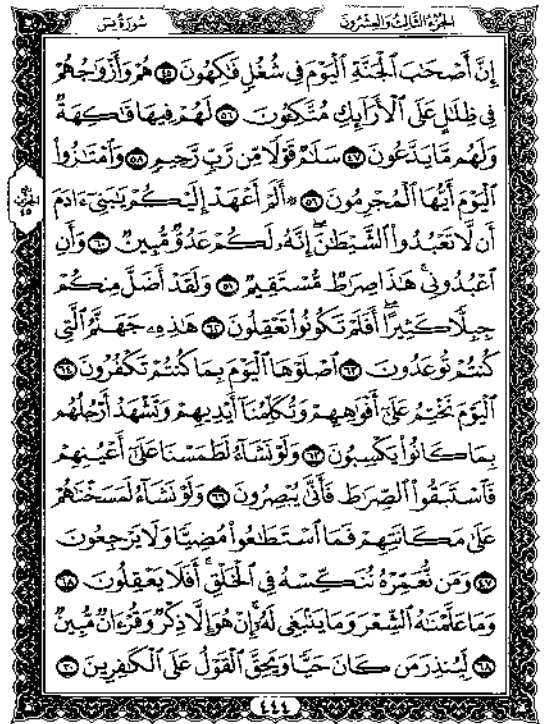 الجزء الثالث والعشرون
سورة يس
إِنَّ أَصْحَٰبَ ٱلْجَنَّةِ ٱلْيَوْمَ فِي شُغُلٍ فَٰكِهُونَ ٥٥ هُمْ وَأَزْوَٰجُهُمْ
فِي ظِلَٰلٍ عَلَى ٱلْأَرَآئِكِ مُتَّكِـُٔونَ ٥٦ لَهُمْ فِيهَا فَٰكِهَةٌ
وَلَهُم مَّا يَدَّعُونَ ٥٧ سَلَٰمٌ قَوْلًا مِّن رَّبٍّ رَّحِيمٍ ٥٨ وَٱمْتَٰزُوا۟
ٱلْيَوْمَ أَيُّهَا ٱلْمُجْرِمُونَ ٥٩ ۞ أَلَمْ أَعْهَدْ إِلَيْكُمْ يَٰبَنِيٓ ءَادَمَ
أَن لَّا تَعْبُدُوا۟ ٱلشَّيْطَٰنَ ۖ إِنَّهُۥ لَكُمْ عَدُوٌّ مُّبِينٌ ٦٠ وَأَنِ
ٱعْبُدُونِي ۚ هَٰذَا صِرَٰطٌ مُّسْتَقِيمٌ ٦١ وَلَقَدْ أَضَلَّ مِنكُمْ
جِبِلًّا كَثِيرًا ۖ أَفَلَمْ تَكُونُوا۟ تَعْقِلُونَ ٦٢ هَٰذِهِۦ جَهَنَّمُ ٱلَّتِي
كُنتُمْ تُوعَدُونَ ٦٣ ٱصْلَوْهَا ٱلْيَوْمَ بِمَا كُنتُمْ تَكْفُرُونَ ٦٤
ٱلْيَوْمَ نَخْتِمُ عَلَىٰٓ أَفْوَٰهِهِمْ وَتُكَلِّمُنَآ أَيْدِيهِمْ وَتَشْهَدُ أَرْجُلُهُم
بِمَا كَانُوا۟ يَكْسِبُونَ ٦٥ وَلَوْ نَشَآءُ لَطَمَسْنَا عَلَىٰٓ أَعْيُنِهِمْ
فَٱسْتَبَقُوا۟ ٱلصِّرَٰطَ فَأَنَّىٰ يُبْصِرُونَ ٦٦ وَلَوْ نَشَآءُ لَمَسَخْنَٰهُمْ
عَلَىٰ مَكَانَتِهِمْ فَمَا ٱسْتَطَٰعُوا۟ مُضِيًّا وَلَا يَرْجِعُونَ
٦٧ وَمَن نُّعَمِّرْهُ نُنَكِّسْهُ فِي ٱلْخَلْقِ ۖ أَفَلَا يَعْقِلُونَ ٦٨
وَمَا عَلَّمْنَٰهُ ٱلشِّعْرَ وَمَا يَنۢبَغِي لَهُۥٓ ۚ إِنْ هُوَ إِلَّا ذِكْرٌ وَقُرْءَانٌ مُّبِينٌ
٦٩ لِّيُنذِرَ مَن كَانَ حَيًّا وَيَحِقَّ ٱلْقَوْلُ عَلَى ٱلْكَٰفِرِينَ ٧٠
٤٤٤